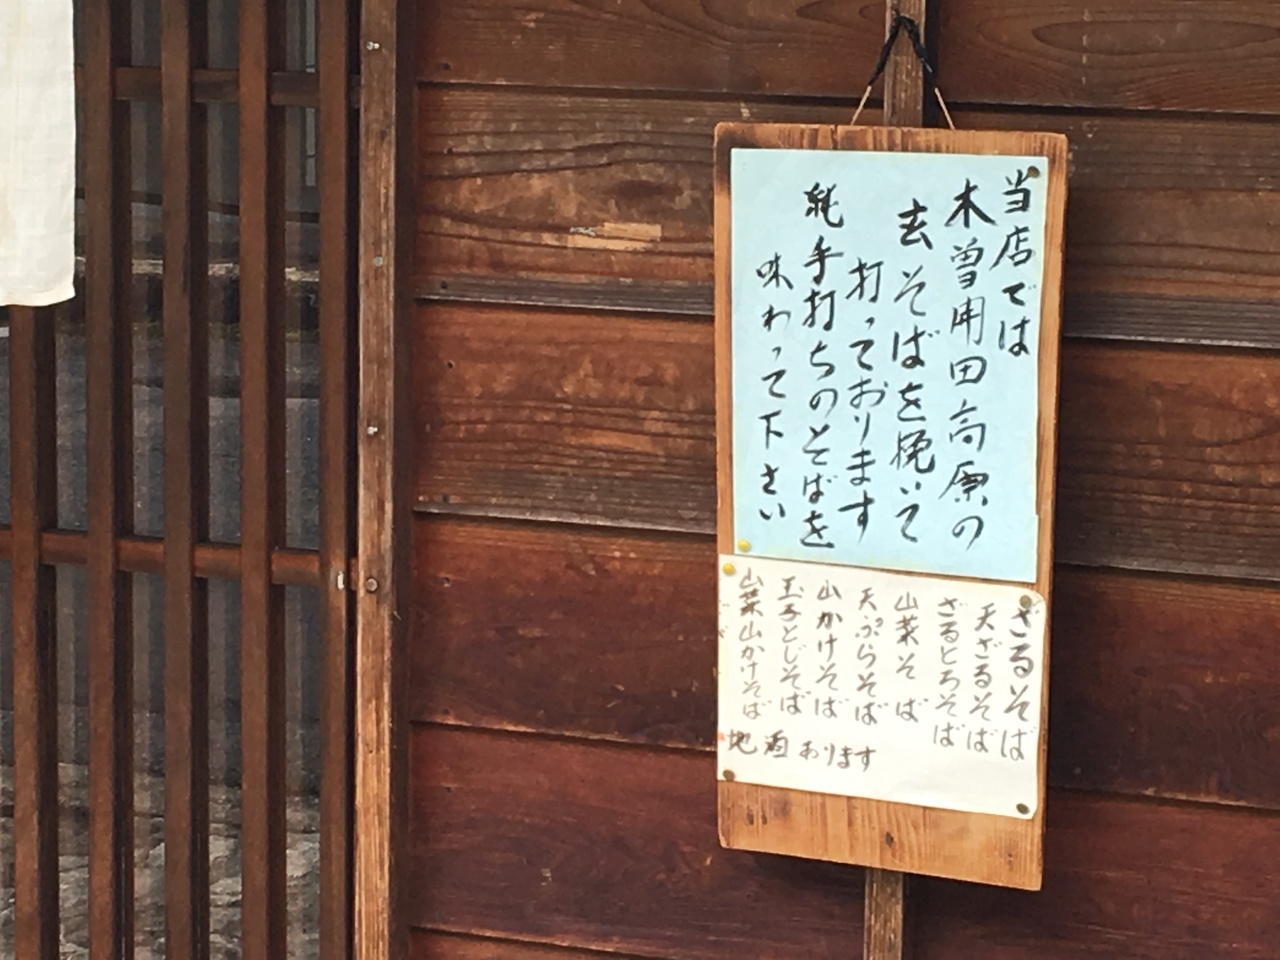 当店では
木曽開田高原の
玄そばを挽いて
打っております
純手打ちのそばを
味わって下さい
ざるそば
天ざるそば
ざるとろそば
山菜そば
天ぷらそば
山かけそば
玉子とじそば
山菜山かけそば
地酒あります